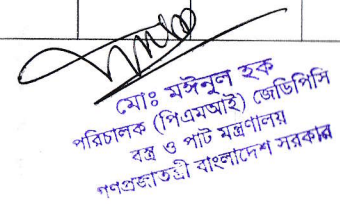 মোঃ মঈনুল হক
পরিচালক (পিএমআই) জেডিপিসি
বস্ত্র ও পাট মন্ত্রণালয়
গণপ্রজাতন্ত্রী বাংলাদেশ সরকার